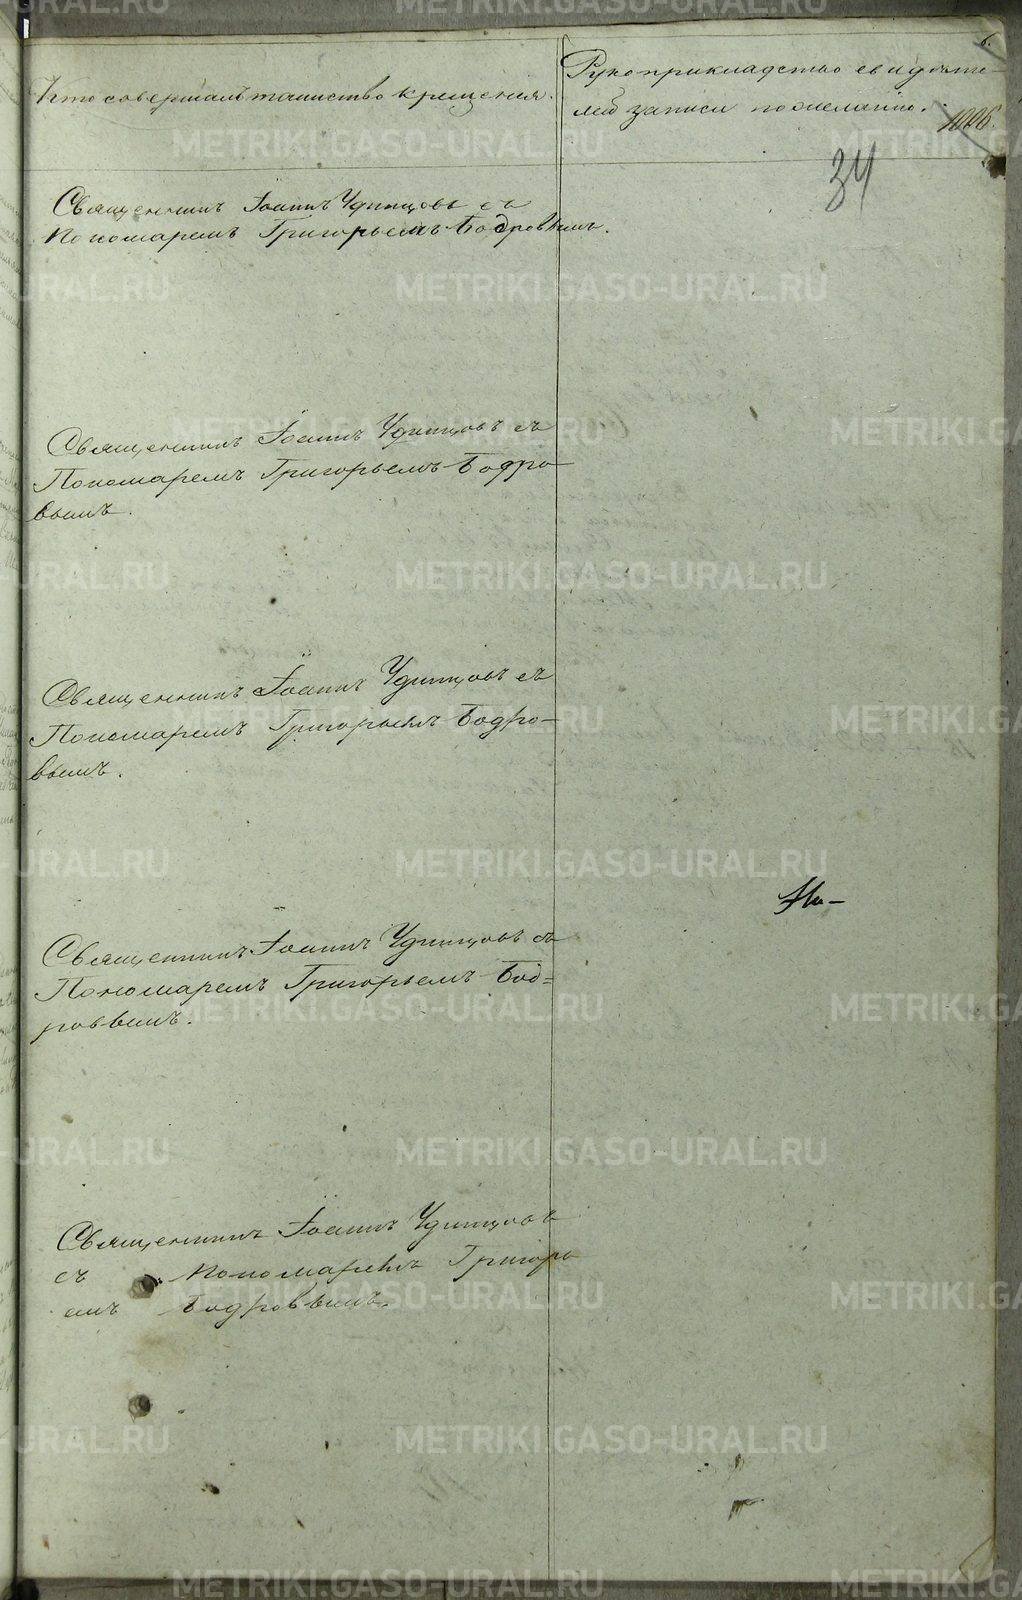 6.
Кто совершалъ таинство крещенія.
Рукоприкладство свидѣте-
лей записи по желанію.
1026.
34
Священникъ Іоаннъ Удинцовъ съ
Пономаремъ Григорьемъ Бодровымъ.
Священникъ Іоаннъ Удинцовъ съ
Пономаремъ Григорьемъ Бодро-
вымъ.
Священникъ Іоаннъ Удинцовъ съ
Пономаремъ Григорьемъ Бодро-
вымъ.
Священникъ Іоаннъ Удинцовъ съ
Пономаремъ Григорьемъ Бод=
ровымъ.
Священникъ Іоаннъ Удинцовъ
съ Пономаремъ Григорь
емъ Бодровымъ.
METRIKI.GASO-URAL.RU